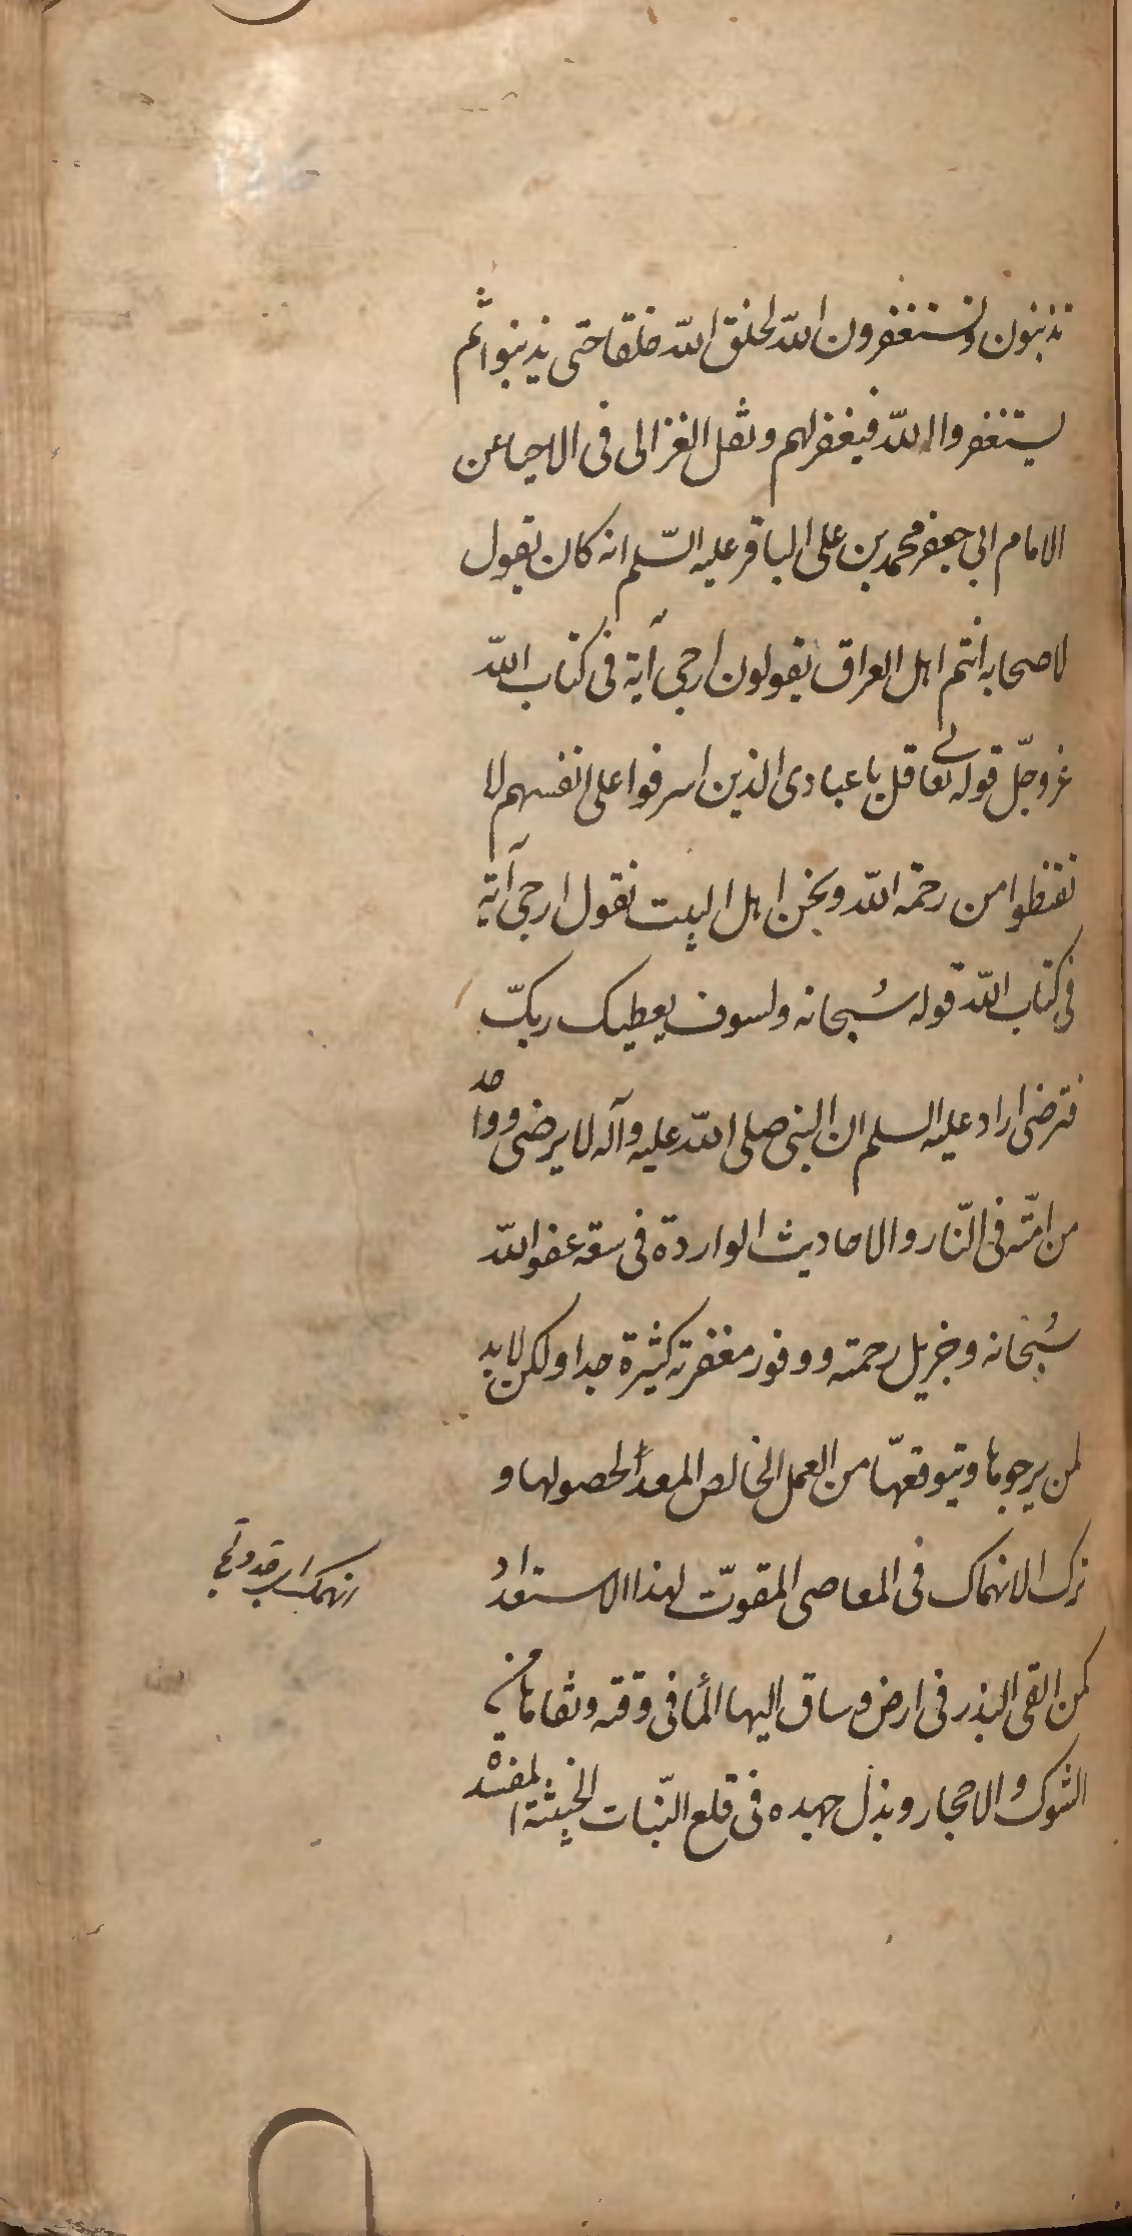 تذنبون وتستغفرون الله لخلق الله خلقا حتى يذنبوا ثم
يستغفروا الله فيغفر لهم ونقل الغزالى فى الاحيا عن
الامام ابى جعفر محمد بن على الباقر عليه السّلم انه كان يقول
لاصحابه انتم اهل العراق يقولون ارجى آية فى كتاب الله
عزوجّل قوله تعالى قل يا عبادى الذين اسرفوا على انفسهم لا
تقنطوا من رحمة الله ونحن اهل البيت نقول ارجى آية
فى كتاب الله قوله سُبحانه ولسوف يعطيك ربكّ
فترضى اراد عليه السلم ان النبى صلى الله عليه وآله لا يرضى وواحد
من امّته فى النّار والاحاديث الواردة فى سعة عفو الله
سُبحانه وجزيل رحمته ووفور مغفرته كثيرة جدا ولكن لابد
لمن يرجوها ويتوقعهّا من العمل الخالص المعدّ لحصولها و
ترك الانهماك فى المعاصى المفوّت لهذا الاستعداد
كمن القى البذر فى ارض وساق اليها المأ فى وقته ونقاها من
الشوك والاحجار وبذل جهده فى قلع النّبات الخبيثة المفسدة
انهمك اى جد ولج